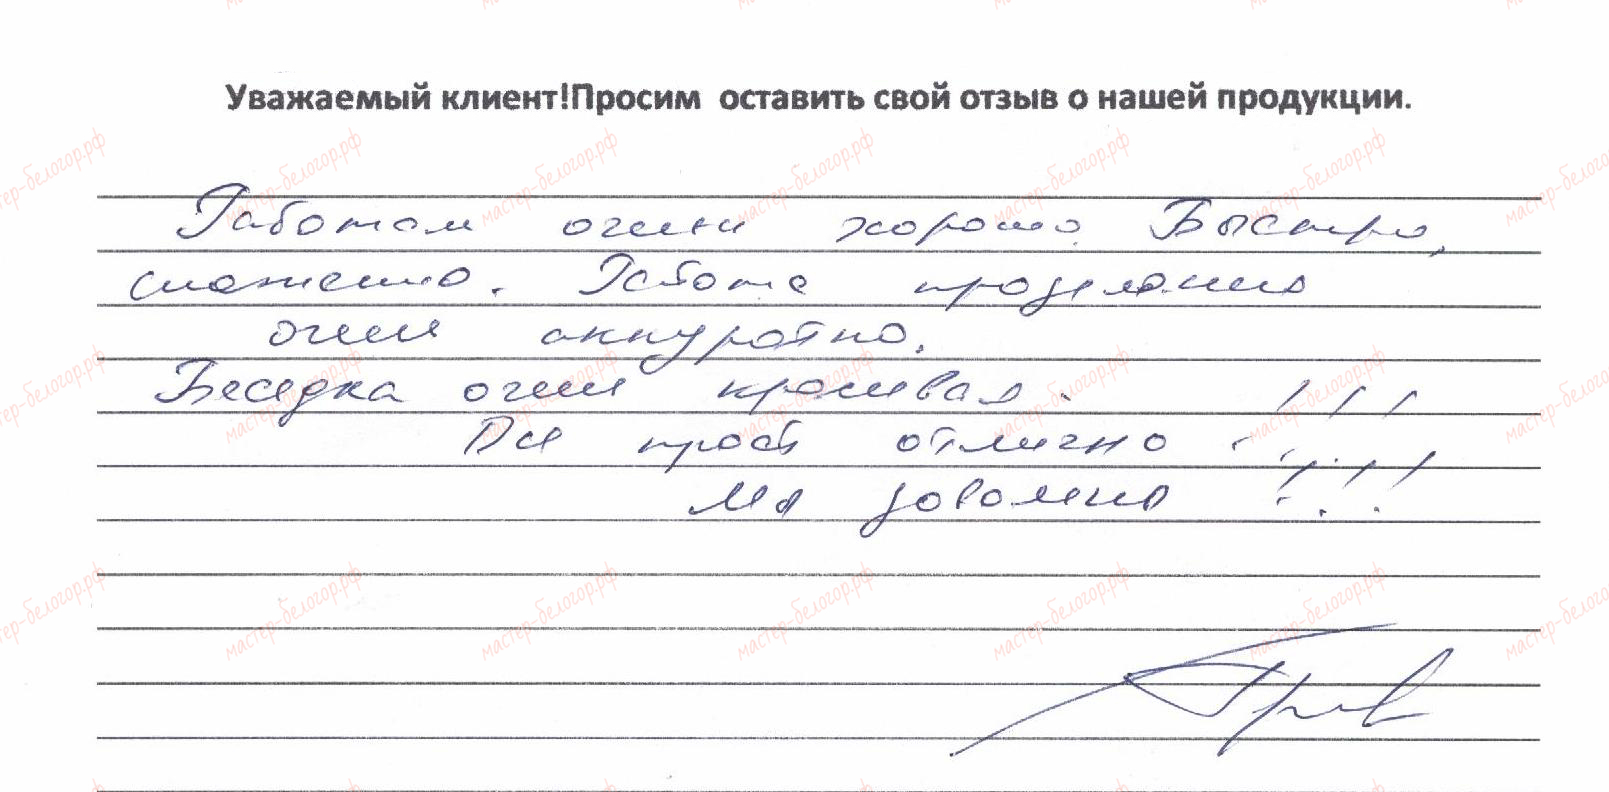 Уважаемый клиент!Просим оставить свой отзыв о нашей продукции.
Работали очень хорошо. Быстро,
слажено. Работа проделана
очень аккуратно.
Беседка очень красивая.
Все просто отлично !!!
Мы довольны !!!
мастер-белогор.рф